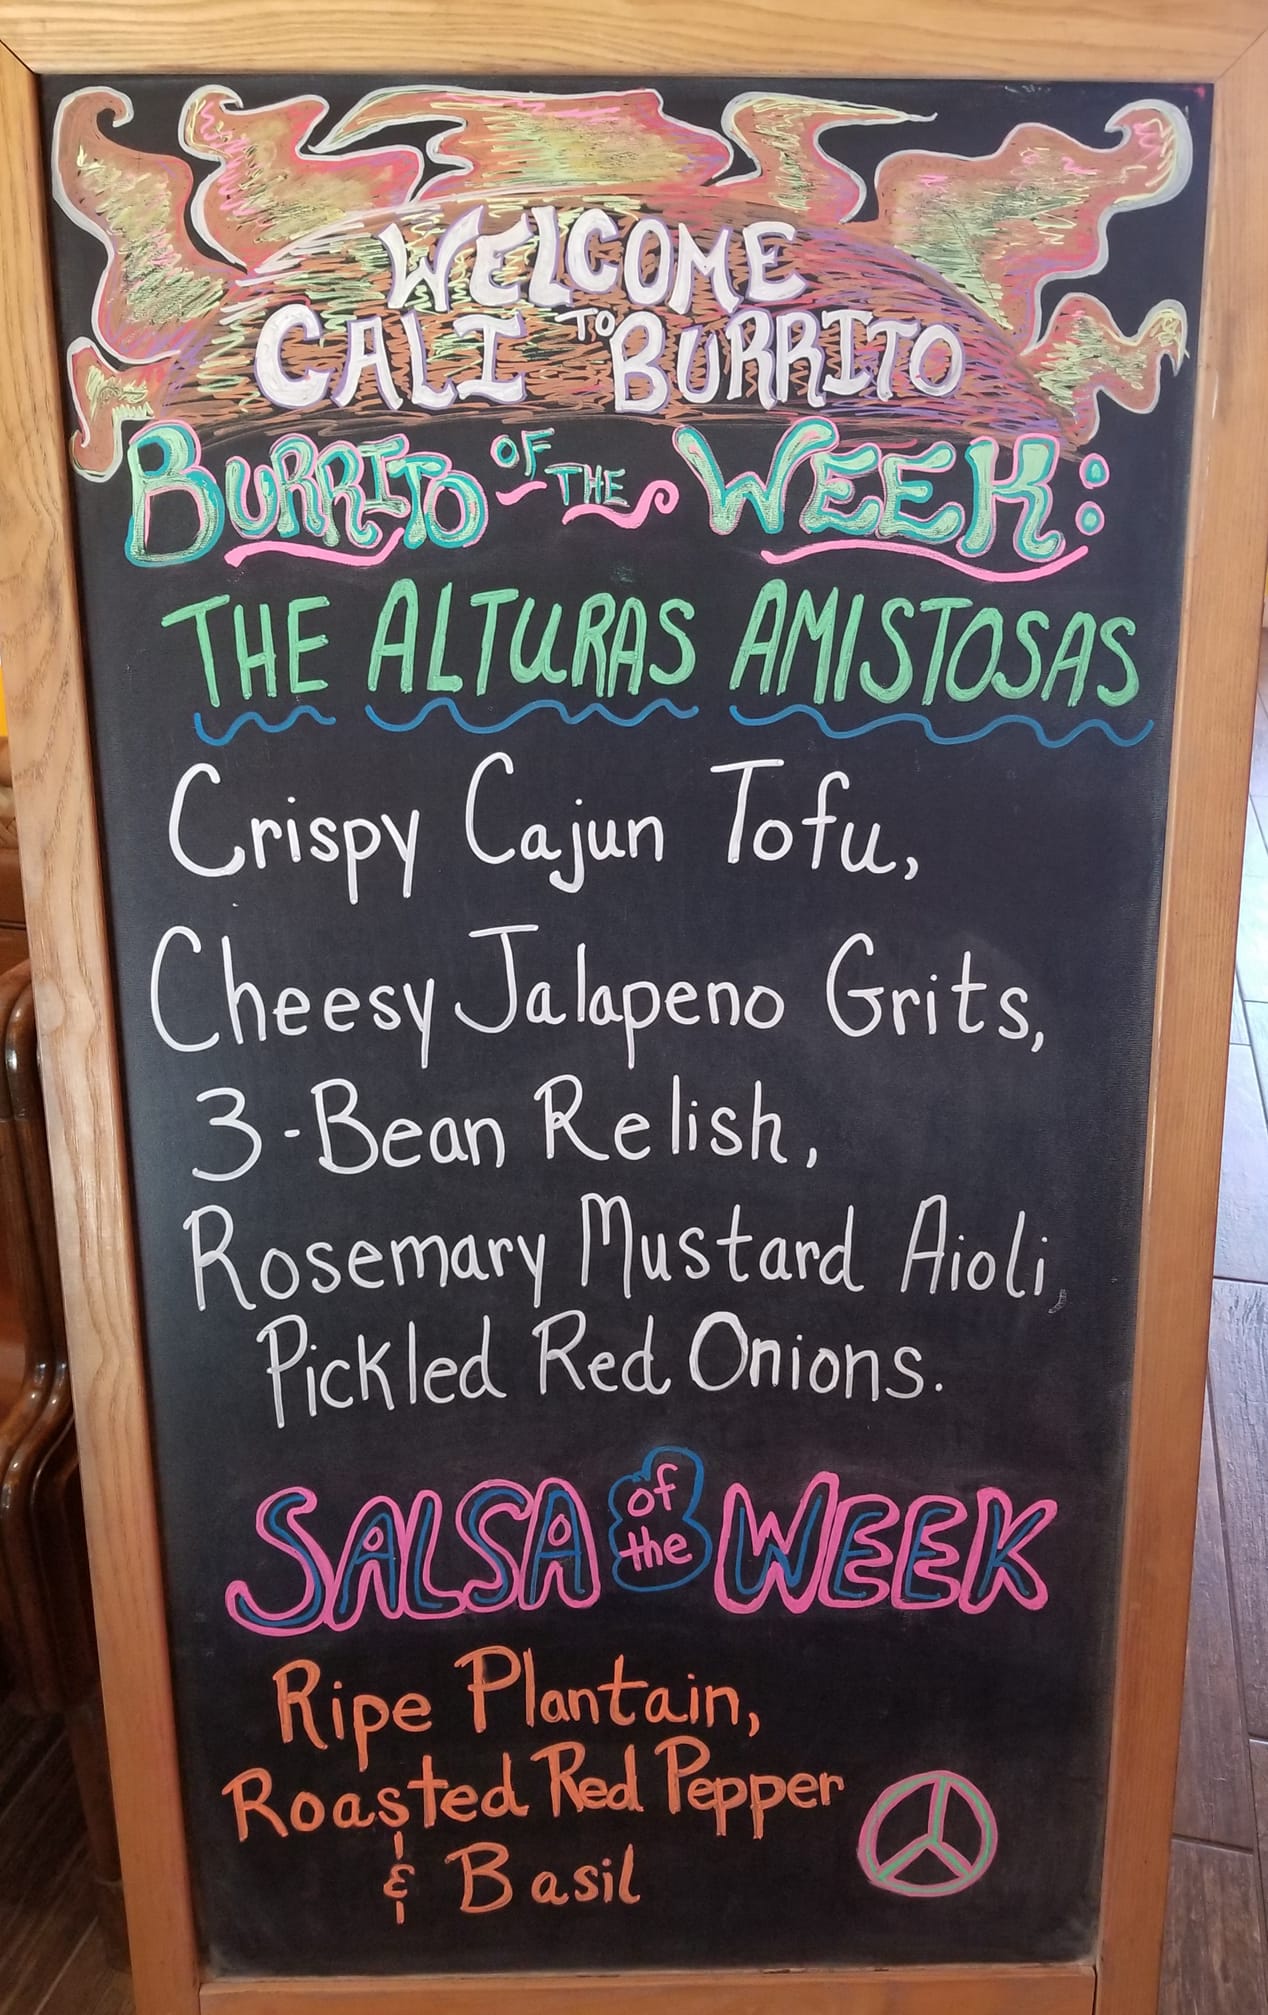 WELCOME
TO
CALI BURRITO
BURRITO OF THE WEEK:
THE ALTURAS AMISTOSAS
Crispy Cajun Tofu,
Cheesy Jalapeno Grits,
3-Bean Relish,
Rosemary Mustard Aioli,
Pickled Red Onions.
SALSA of the WEEK
Ripe Plantain,
Roasted Red Pepper
& Basil